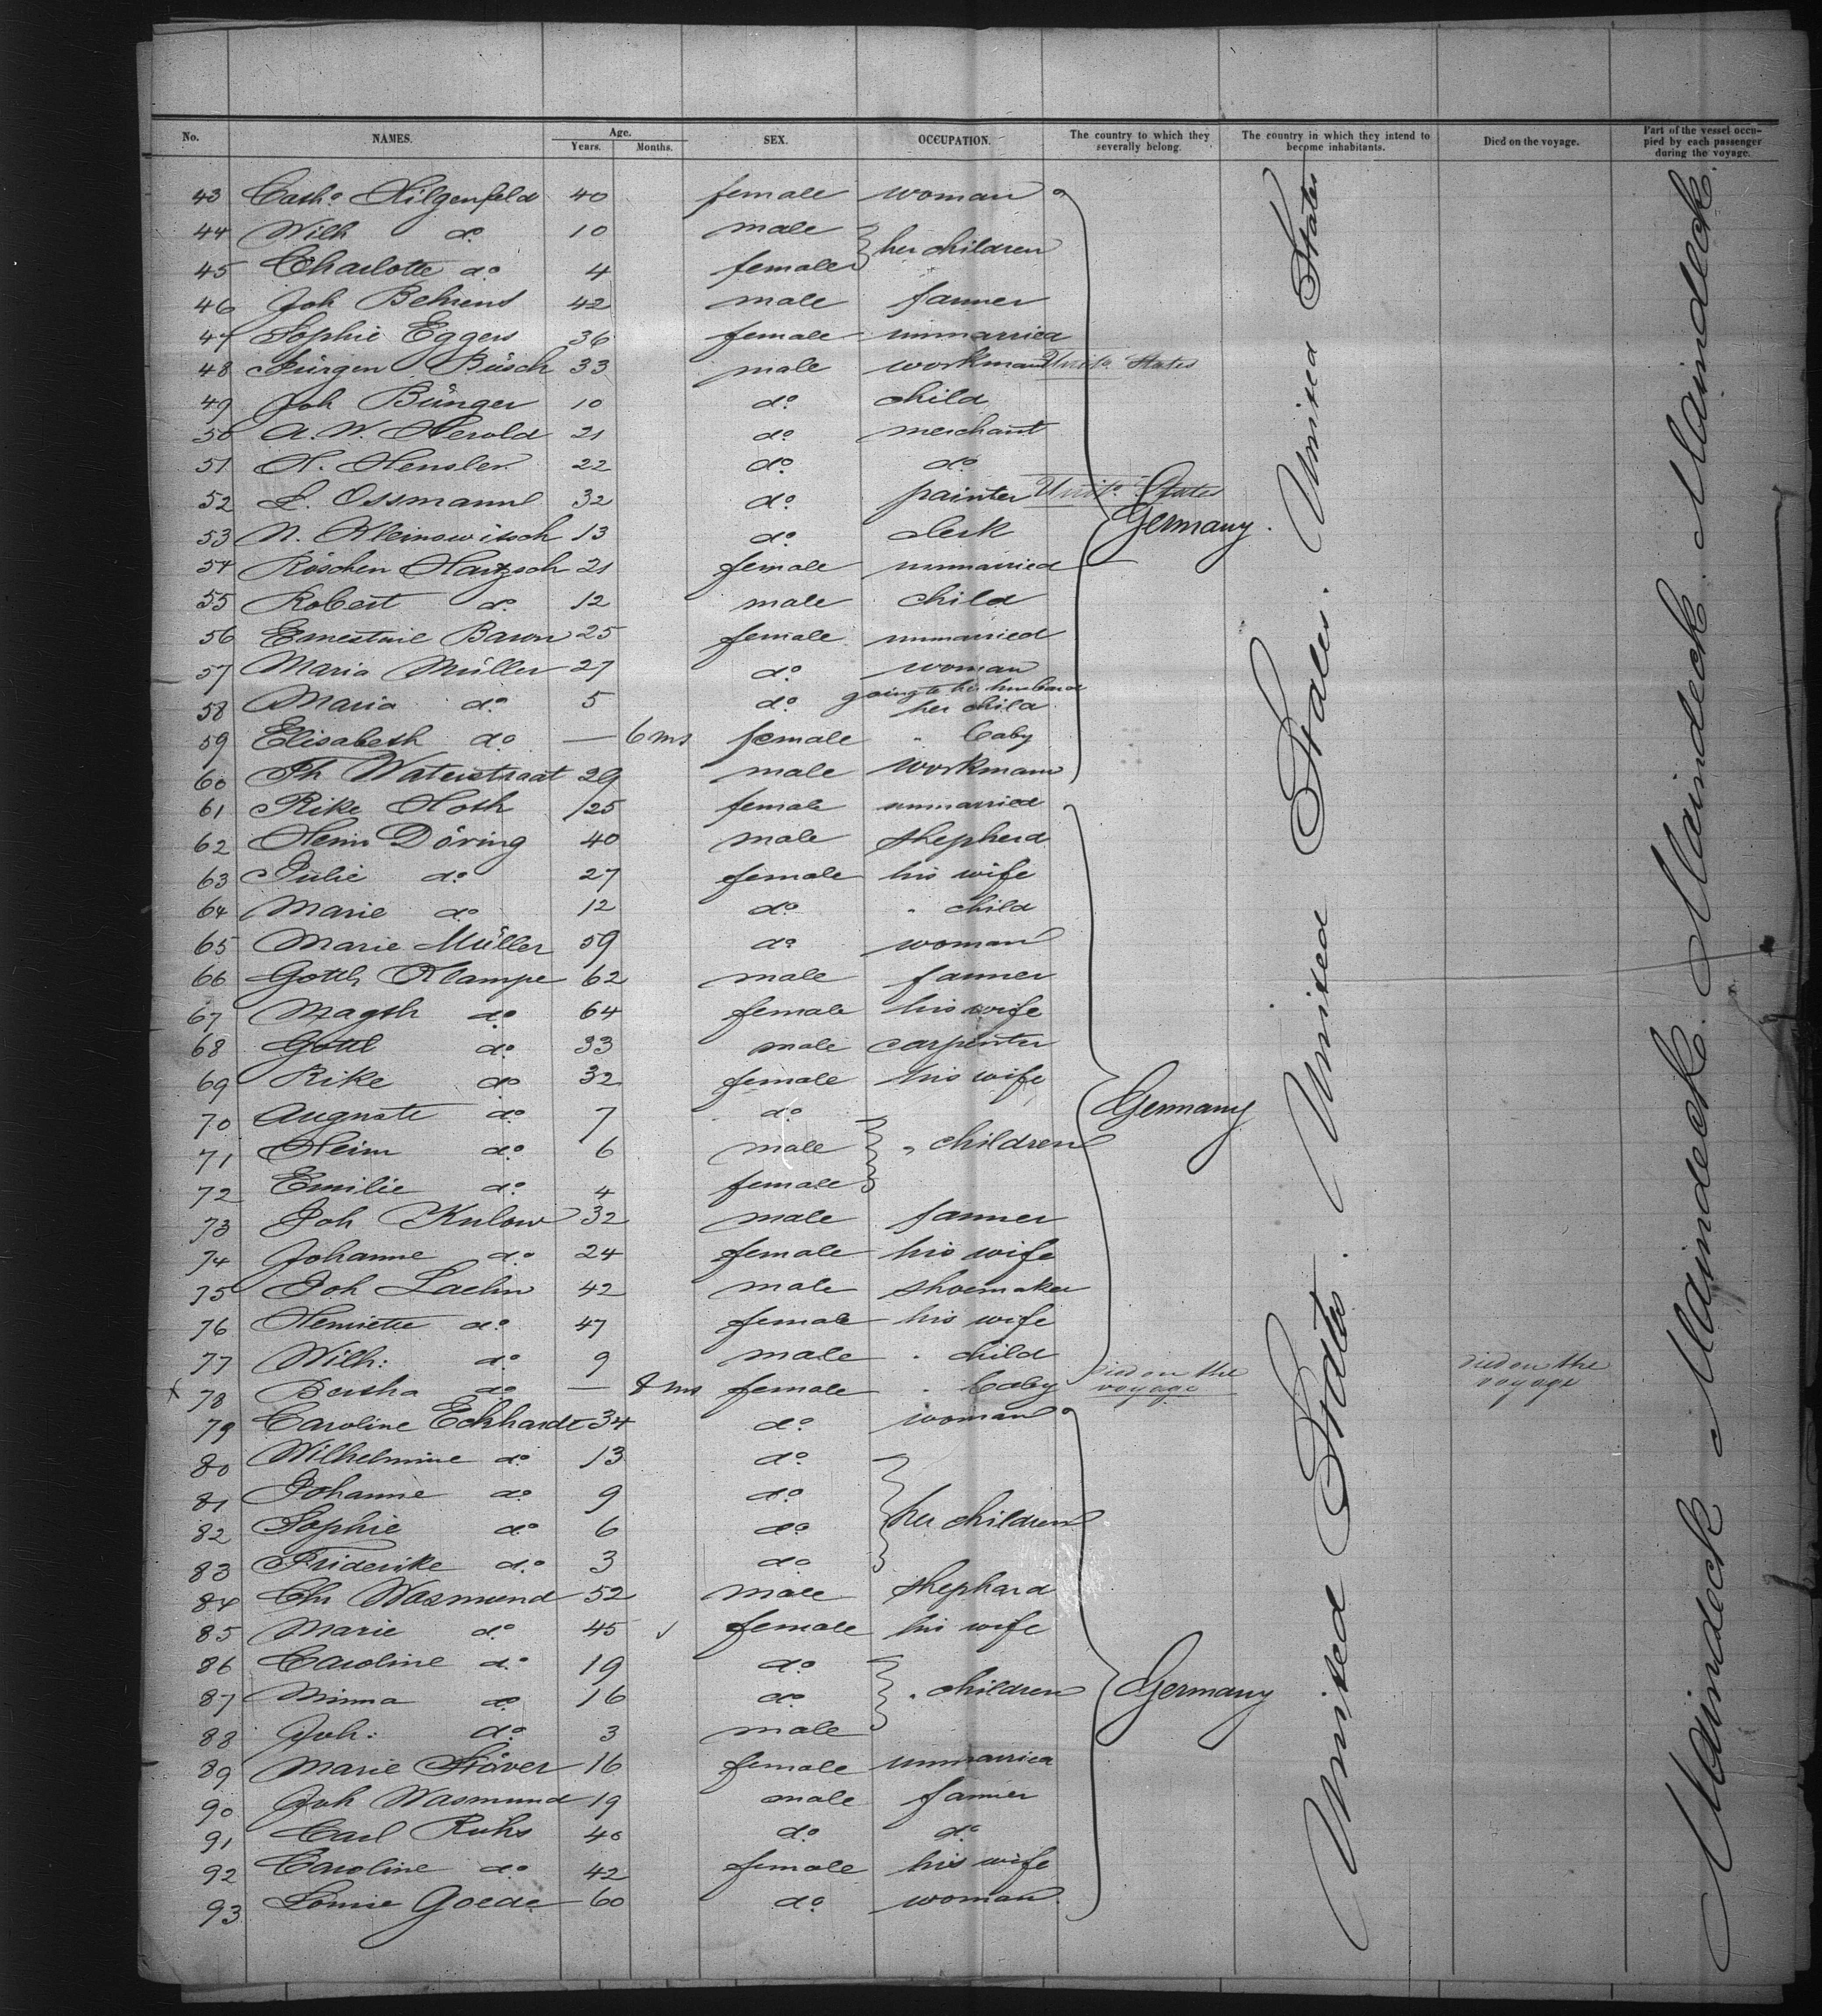 No. NAMES. Age. Years. Months. SEX. OCCUPATION. The country to which they severally belong. The country in which they intend to become inhabitants. Died on the voyage. Part of the vessel occupied by each passenger during the voyage.
43 Cath:a Hilgenfeld 40 female woman
44 Wilh do 10 male
her children
45 Charlotte do 4 female
46 Joh Behrens 42 male farmer
47 Sophie Eggers 36 female unmarried
48 Jürgen Büsch 33 male workman Unit. States
49 Joh Bünger 10 do child
50 A. W. Herold 21 do merchant
51 H. Hensler 22 do do
52 L. Ossmann 32 do painter Unit. States
53 N. Kleinowitsch 13 do clerk Germany.
54 Röschen Hartzsch 21 female unmarried
55 Robert do 12 male child
56 Ernestine Baron 25 female unmarried
57 Maria Müller 27 do woman
going to his husband
58 Maria do 5 do her child
59 Elisabeth do — 6 ms female " baby
60 Ph Waterstraat 29 male workman
61 Rike Hoth 25 female unmarried
62 Heinr Döring 40 male shepherd
63 Julie do 27 female his wife
64 Marie do 12 do " child
65 Marie Müller 59 do woman
66 Gottl Klampe 62 male farmer
67 Magth do 64 female his wife
68 Gottl do 33 male carpenter
69 Rike do 32 female his wife
Germany
70 Auguste do 7 do
71 Heinr do 6 male " children
72 Emilie do 4 female
73 Joh Kulow 32 male farmer
74 Johanne do 24 female his wife
75 Joh Laehn 42 male shoemaker
76 Henriette do 47 female his wife
77 Wilh: do 9 male " child
x 78 Bertha do — 8 ms female " baby died on the voyage died on the voyage
79 Caroline Eckhardt 34 do woman
80 Wilhelmine do 13 do
81 Johanne do 9 do
her children
82 Sophie do 6 do
83 Friderike do 3 do
84 Chr Wasmund 52 male shephard
85 Marie do 45 female his wife
86 Caroline do 19 do
87 Minna do 16 do " children Germany
88 Joh: do 3 male
89 Marie Stöver 16 female unmarried
90 Joh Wasmund 19 male farmer
91 Carl Rühs 40 do do
92 Caroline do 42 female his wife
93 Louise Goede 60 do woman
United States. United States. United States
Maindeck Maindeck. Maindeck. Maindeck.